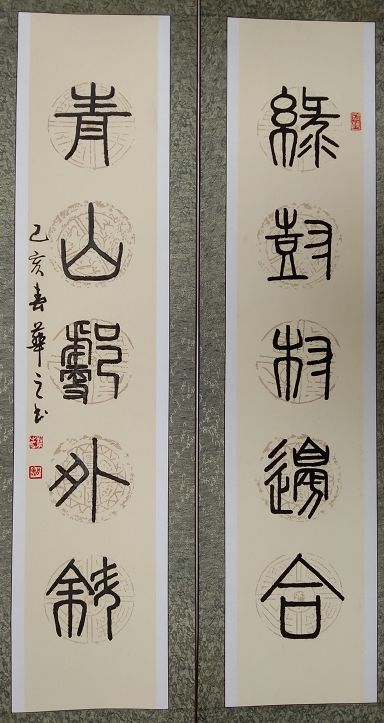 綠樹村邊合
青山郭外斜
己亥春華之書